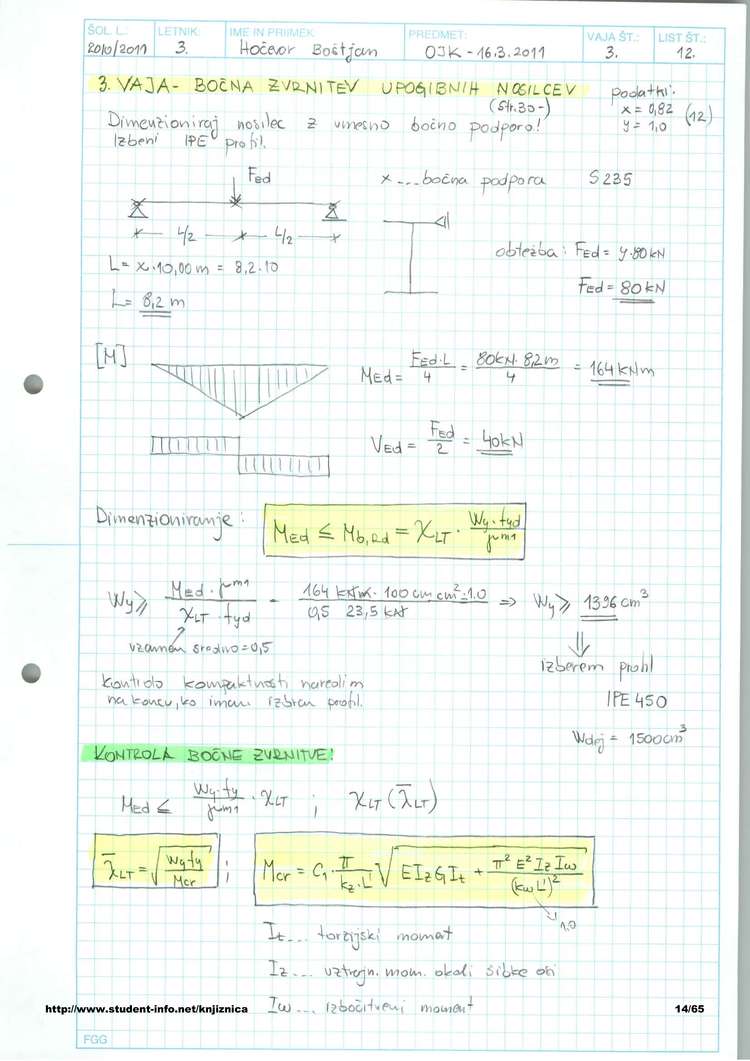 ŠOL. L.: LETNIK: IME IN PRIIMEK PREDMET: VAJA ŠT.: LIST ŠT.:
2010/2011 3. Hočevar Boštjan OJK - 16.3.2011 3. 12.
3. VAJA - BOČNA ZVRNITEV UPOGIBNIH NOSILCEV
(Str. 30-)
podatki:
x = 0,82
y = 1,0
(12)
Dimenzioniraj nosilec z vmesno bočno podporo!
Izberi IPE profil.
FEd
x ... bočna podpora S 235
L/2 L/2
L = x · 10,00 m = 8,2 · 10
L = 8,2 m
obtežba: FEd = y · 80 kN
FEd = 80 kN
[M]
MEd = FEd · L / 4 = 80 kN · 8,2 m / 4 = 164 kNm
VEd = FEd / 2 = 40 kN
Dimenzioniranje: MEd ≤ Mb,Rd = χLT · Wy · fyd / γm1
Wy ≥ MEd · γm1 / χLT · fyd = 164 kNm · 100 cm cm² · 1.0 / 0,5 23,5 kN ⇒ Wy ≥ 1396 cm³
vzamem sredino = 0,5
⇓
Izberem profil
IPE 450
Wdej = 1500 cm³
Kontrolo kompaktnosti naredim
na koncu, ko imam izbran profil.
KONTROLA BOČNE ZVRNITVE!
MEd ≤ Wy · fy / γm1 · χLT ; χLT (λ̄LT)
λ̄LT = √(Wy fy / Mcr) ; Mcr = C1 · π / kz · L √(E Iz G It + π² E² Iz Iw / (kw L)²)
1.0
It ... torzijski moment
Iz ... vztrajn. mom. okoli šibke osi
Iw ... izbočitveni moment
http://www.student-info.net/knjiznica 14/65
FGG